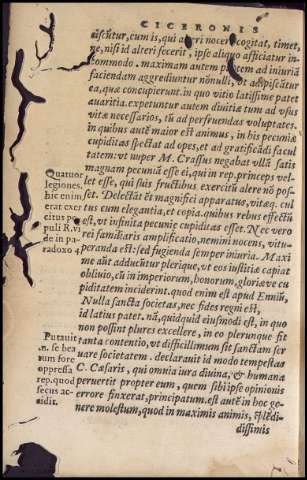 CICERONIS
aiscũtur, cum is, qui nocere cogitat, timet,
ne, nisi id alteri fecerit, ipse aliquo afficiatur in=
commodo. maximam autem partem ad iniuriā
faciendam aggrediuntur nōnulli, ut adipiscātur
ea, quæ concupierunt. in quo vitio latissime patet
auaritia. expetuntur autem diuitiæ tum ad vsus
vitæ necessarios, tũ ad perfruendas voluptates.
in quibus autē maior est animus, in his pecuniæ
cupiditas spectat ad opes, et ad gratificādi facul
tatem: vt nuper M. Crassus negabat vllā satis
magnam pecuniā esse ei, qui in rep. princeps vel=
let esse, qui suis fructibus exercitũ alere nō pos=
set. Delectāt et magnifici apparatus, vitæq. cul
tus cum elegantia, et copia. quibus rebus effectũ
est, vt infinita pecuniæ cupiditas esset. Nec vero
rei familiaris amplificatio, nemini nocens, vitu=
peranda est: sed fugienda semper iniuria. Maxi
me aũt adducũtur plerique, vt eos iustitiæ capiat
obliuio, cũ in imperiorum, honorum, gloriæ ve cu
piditatem inciderint. quod enim est apud Enniũ,
Nulla sancta societas, nec fides regni est,
id latius patet. nā, quidquid eiusmodi est, in quo
non possint plures excellere, in eo plerunque fit
tanta contentio, vt difficillimum sit sanctam ser
uare societatem. declarauit id modo temeritas
C. Cæsaris, qui omnia iura diuina, & humana
peruertit propter eum, quem sibi ipse opinionis
errore finxerat, principatum. est autē in hoc ge=
nere molestum, quod in maximis animis, splēdi=
dissimis
Quatuor
legiones.
hic enim
erat exer
citus po
puli R. vi
de in pa-
radoxo 4.
Putauit
.n. se bea
tum fore
oppressa
rep. quod
secus ac-
cidit.